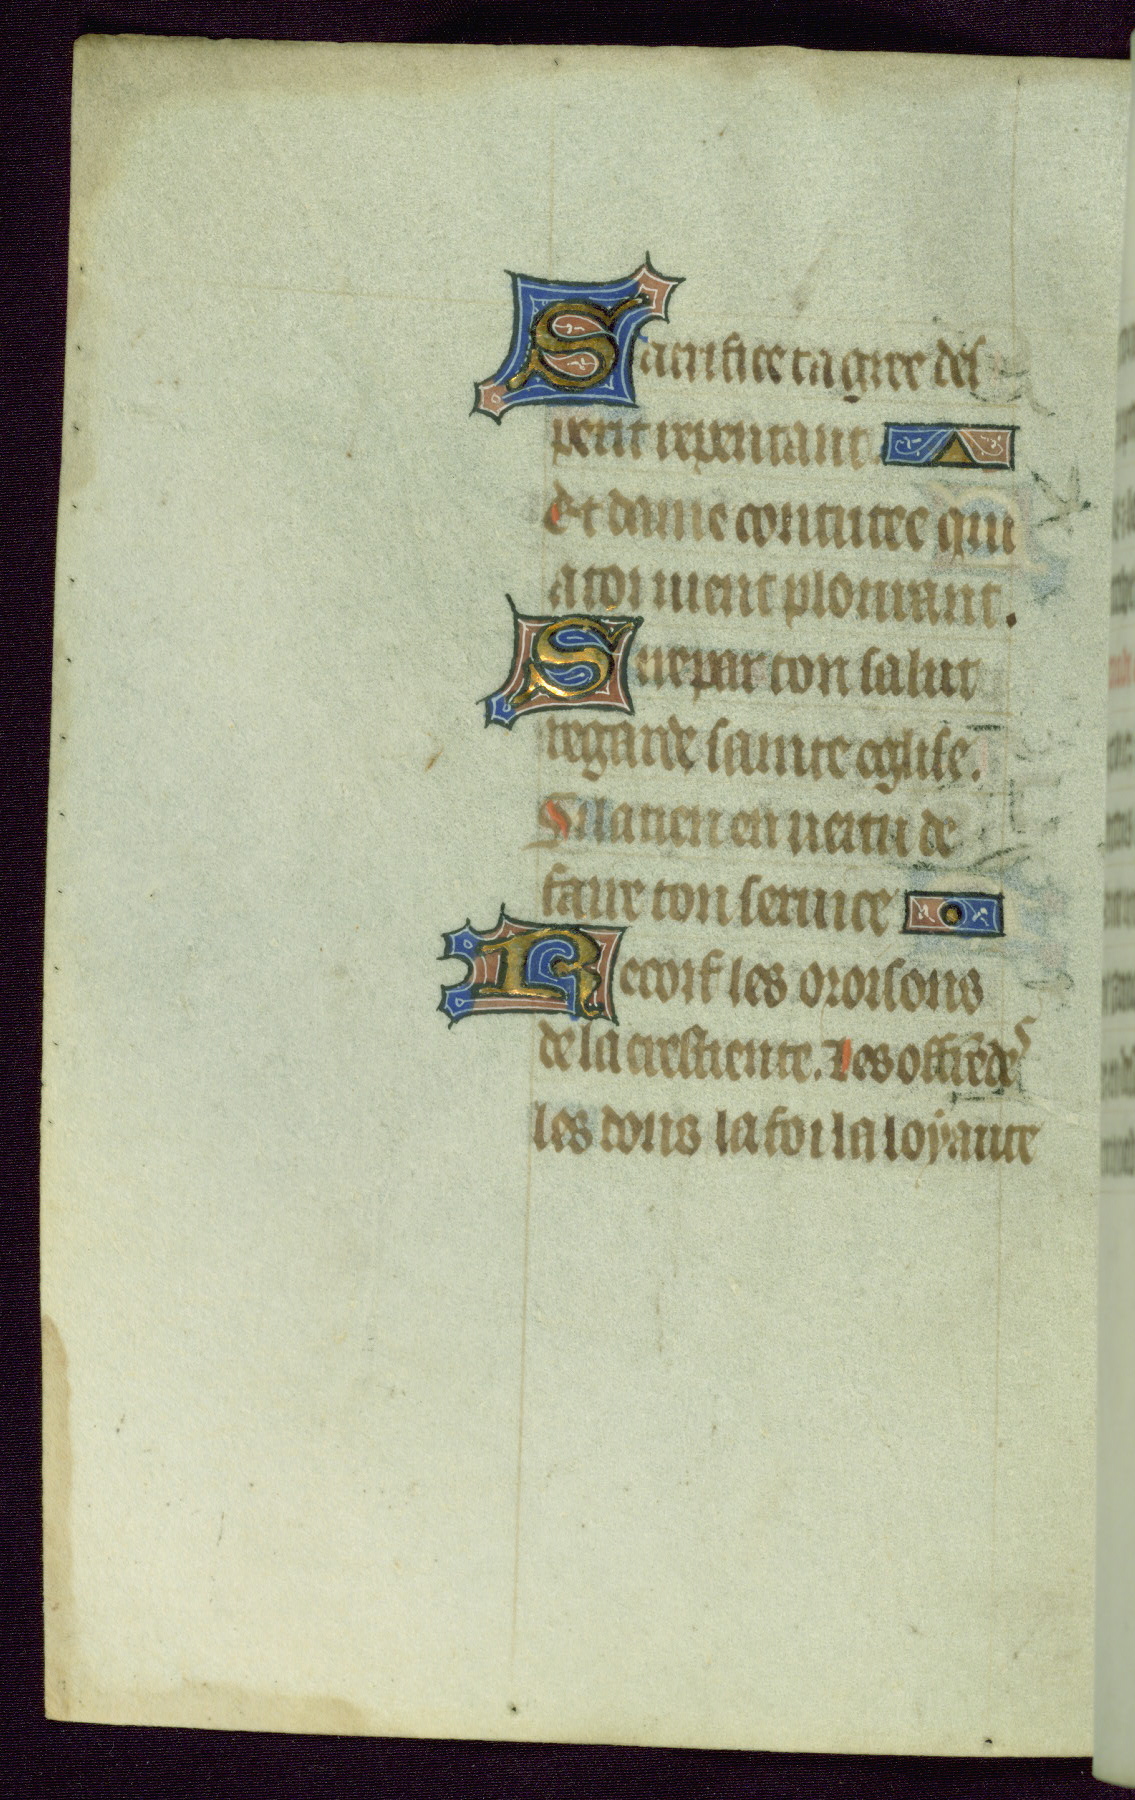 Sacrifice ta gree desperit repentant
Et dame contritee qui
a toi uient plourant.
Sire par ton salut
regarde sainte eglise.
Si la tien en uertu de
faire ton seruice
Recoif les oroisons
de la crestiente. Les offrendes
les dons la foi la loyaute